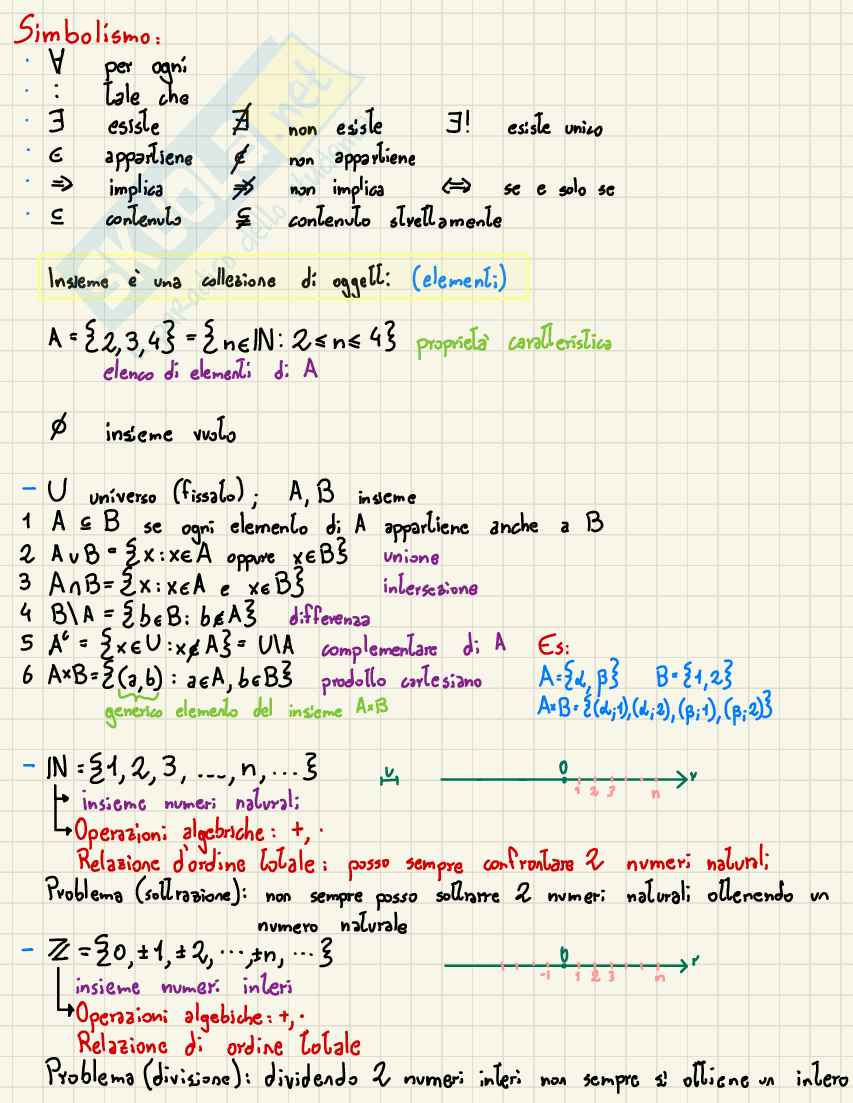 Simbolismo:
· ∀ per ogni
· : tale che
· ∃ esiste ∄ non esiste ∃! esiste unico
· ∈ appartiene ∉ non appartiene
· ⇒ implica ⇏ non implica ⇔ se e solo se
· ⊆ contenuto ⊊ contenuto strettamente
Insieme è una collezione di oggetti (elementi)
A = {2,3,4} = {n∈ℕ: 2≤n≤4} proprietà caratteristica
elenco di elementi di A
∅ insieme vuoto
- U universo (fissato); A, B insieme
1 A ⊆ B se ogni elemento di A appartiene anche a B
2 A∪B = {x : x∈A oppure x∈B} unione
3 A∩B = {x : x∈A e x∈B} intersezione
4 B\A = {b∈B: b∉A} differenza
5 Aᶜ = {x∈U : x∉A} = U\A complementare di A Es:
6 A×B = {(a,b) : a∈A, b∈B} prodotto cartesiano A={α,β} B={1,2}
generico elemento del insieme A×B A×B={(α;1),(α;2),(β;1),(β;2)}
- ℕ = {1, 2, 3, ..., n, ...} u 0 r
1 2 3 n
insieme numeri naturali
Operazioni algebriche: +, ·
Relazione d'ordine totale: posso sempre confrontare 2 numeri naturali
Problema (sottrazione): non sempre posso sottrarre 2 numeri naturali ottenendo un
numero naturale
- ℤ = {0, ±1, ±2, ..., ±n, ...} 0 r
-1 1 2 3 n
insieme numeri interi
Operazioni algebiche: +, ·
Relazione di ordine totale
Problema (divisione): dividendo 2 numeri interi non sempre si ottiene un intero
skuola.net